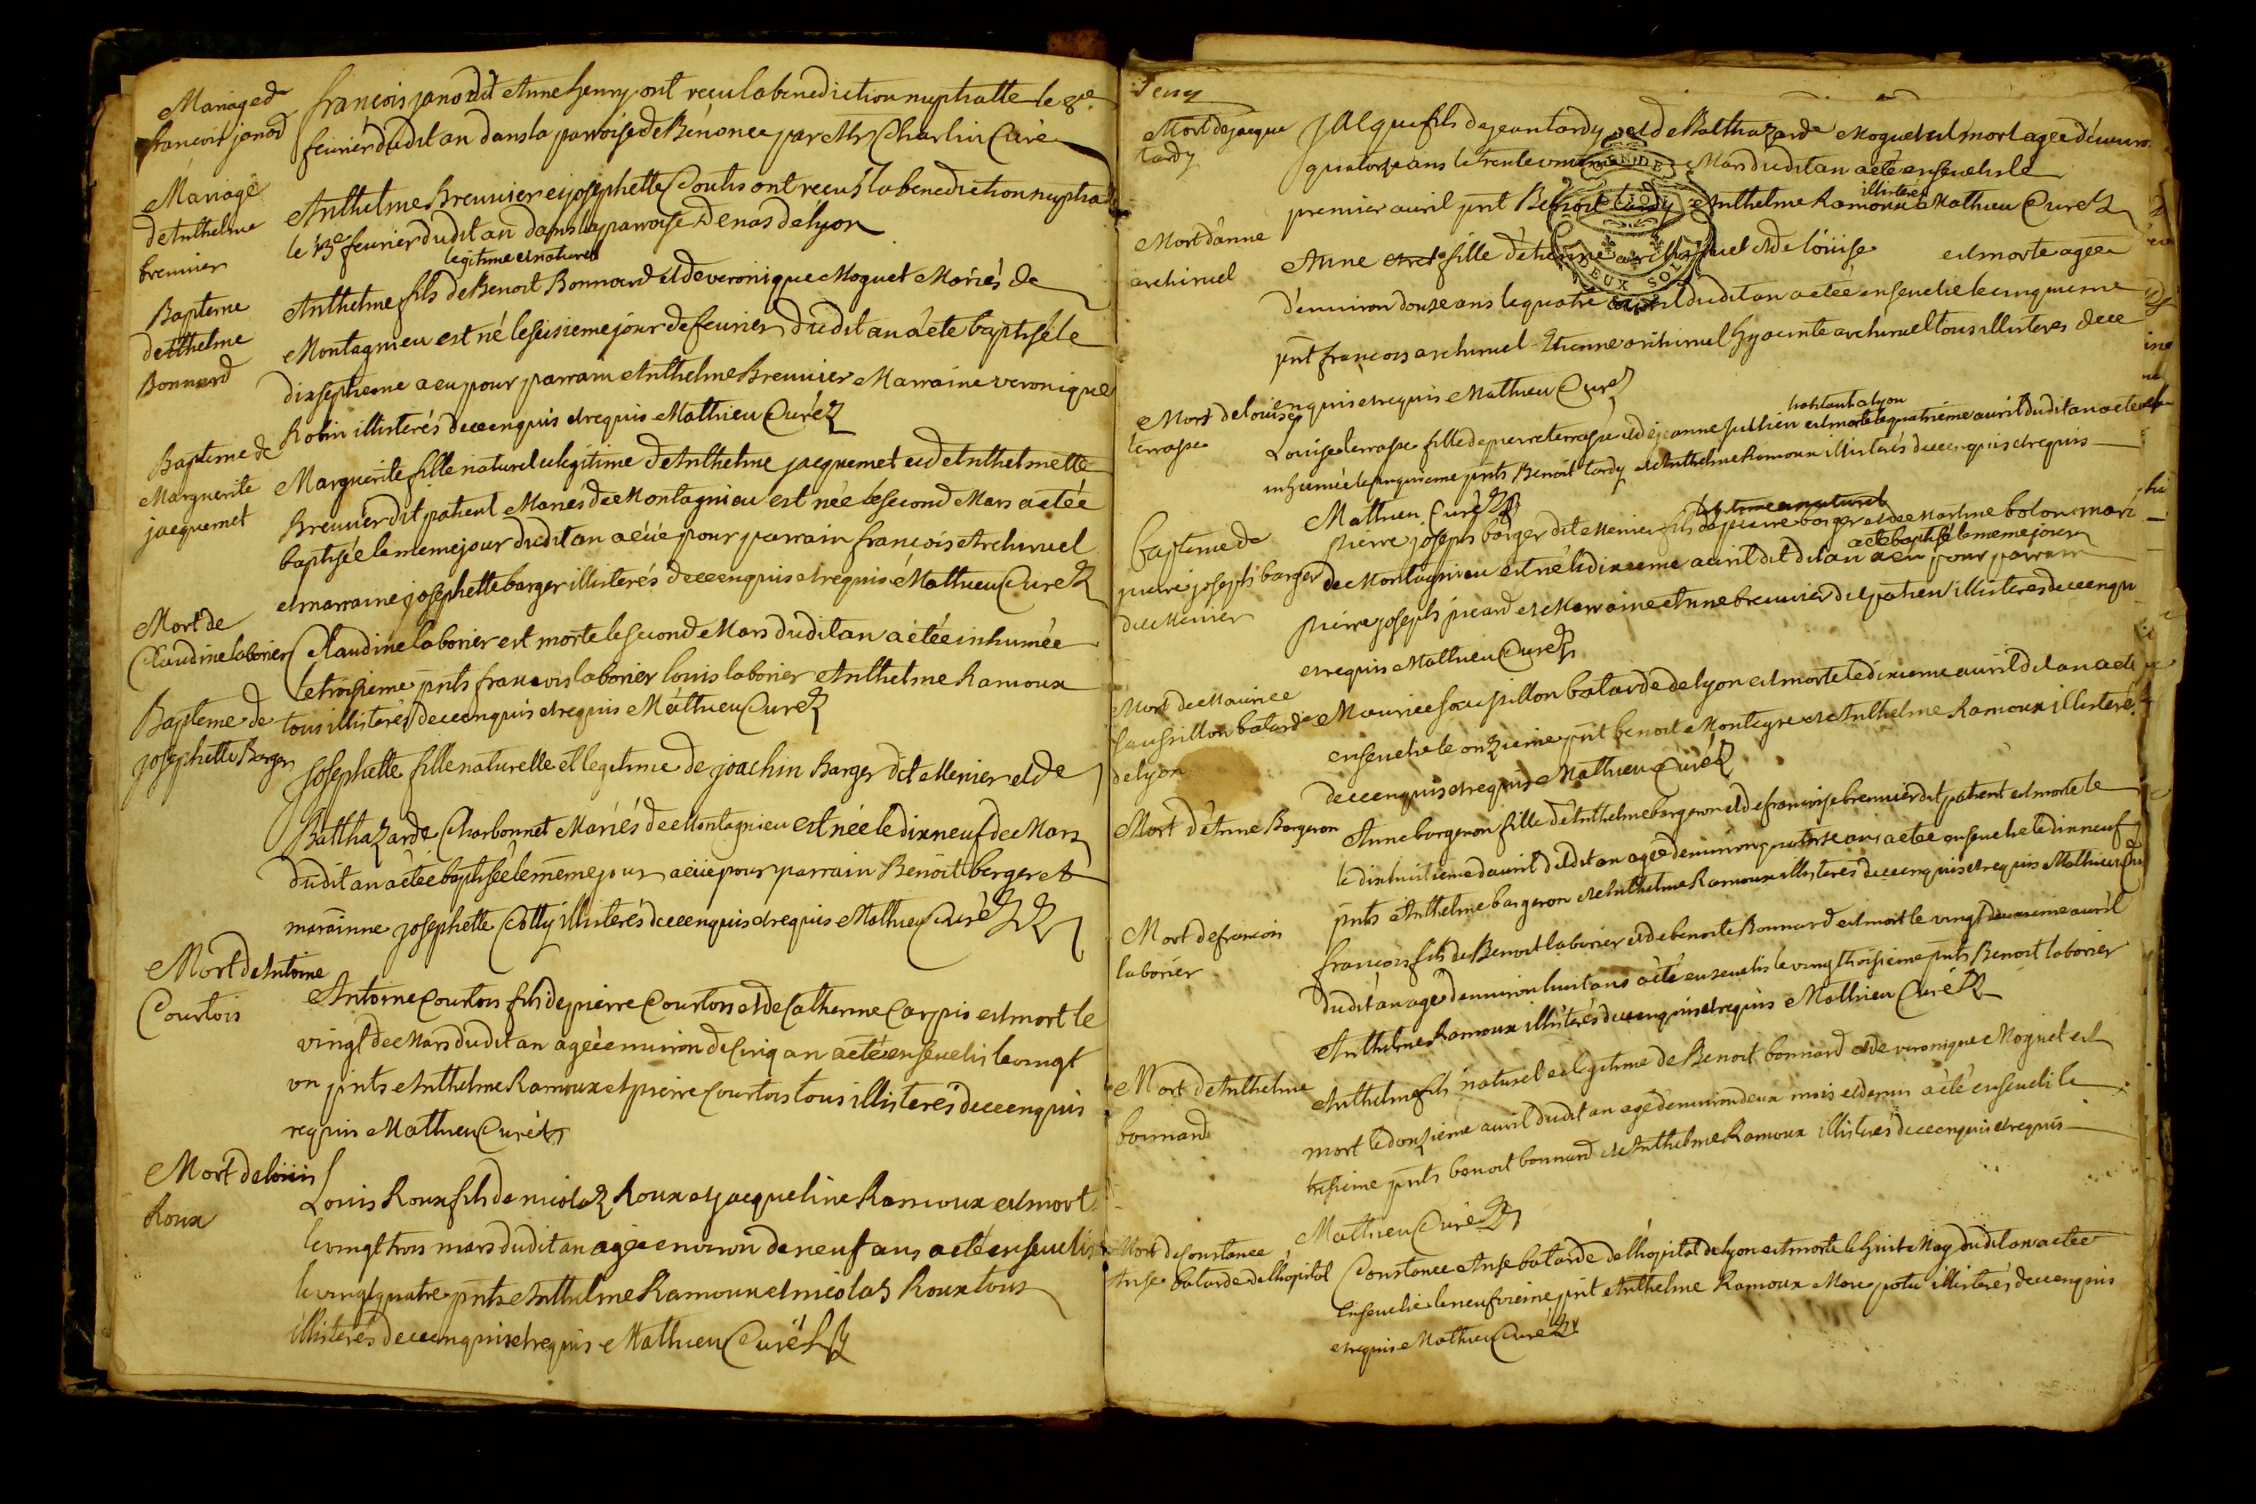 Mariage de
françois janod
françois janod et Anne henry ont reçu la benediction nuptialle le 8e
feurier dudit an dans la parroise de Bénonce par Mr Charlin Curé
Mariage
d'Anthelme
breuuier
Anthelme Breuuier et josephette Coutis ont reçus la benediction nuptiale
le 13e feurier dudit an dans la parroise de nas de lyon
Bapteme
d'Anthelme
Bonnard
legitime et naturel
Anthelme fils de Benoit Bonnard et de veronique Moguet Mariés de
Montagnieu est né le seisieme jour de feurier dudit an a été baptisé le
dixseptieme a eu pour parrain Anthelme Breuuier Marraine veronique
Robin illiterés de ce enquis et requis Mathieu Curé
Bapteme de
Marguerite
jacquemet
Marguerite fille naturel et legitime d'Anthelme jacquemet et d'Anthelmette
Breuuier dit patient Mariés de Montagnieu est née le second Mars a etée
baptisée le meme jour dudit an a eüe pour parrain françois Archiruel
et marraine josephette barger illiterés de ce enquis et requis Mathieu Curé
Mort de
Claudine laborier
Claudine laborier est morte le second Mars dudit an a étée inhumée
le troisieme pnts francois laborier louis laborier Anthelme Ramoux
tous illiterés de ce enquis et requis Mathieu Curé
Bapteme de
josephette Barger
Josephette fille naturelle et legitime de joachin Barger dit Menier et de
Balthazarde Charbonnet Mariés de Montagnieu est née le dixneuf de Mars
dudit an a étée baptisée le même jour a eüe pour parrain Benoit berger et
maráinne josephette Cotty illiterés de ce enquis et requis Mathieu Curé
Mort d'Antoine
Courtois
Antoine Courtois fils de pierre Courtois et de Catherine Carpis est mort le
vingt de Mars dudit an agée enuiron de cinq an a eté enseuelis le vingt
un pnts Anthelme Ramoux et pierre Courtois tous illiterés de ce enquis
requis Mathieu Curé
Mort de loüis
Roux
Louis Roux fils de nicolaz Roux et jacqueline Ramoux est mort
le vingt trois mars dudit an agée enuiron de neuf ans a eté enseuelis
le vingt quatre pnts Anthelme Ramoux et nicolas Roux tous
illiterés de ce enquis et requis Mathieu Curé
Mort de jacque
tardy
JAcque fils de jean tardy et de Balthazarde Moguet est mort agée d'enuiron
quatorze ans le trente Mars dudit an a eté enseuelis le
illiterés
premier auril pnt Benoit tardy Anthelme Ramoux Mathieu Curé
Mort d'anne
archiruel
Anne fille d'etienne archiruel et de loüise est morte agée
d'enuiron douze ans le quatre auril dudit an a etée enseuelie le cinquieme
pnt francois archiruel Etienne archiruel hyacinte archiruel tous illiteres de ce
enquis et requis Mathieu Curé
Mort de louise
terrasse
habitant a lyon
Louise terrasse fille de pierre terrasse et de jeanne Jullien est morte le quatrieme auril dudit an a eté
inhumée le cinquieme pnts Benoit tardy et Anthelme Ramoux illiterés de ce enquis et requis
Mathieu Curé
bapteme de
pierre joseph barger
dit Menier
legitime et naturel
pierre joseph barger dit Menier fils de pierre barger et de Martine bolon mariés
a eté baptisé le meme jour
de Montagnieu est né le dixieme auril dudit an a eu pour parrain
pierre joseph picard et Marraine Anne breuuier dit patient illiteres de ce enquis
et requis Mathieu Curé
Mort de Maurice
batarde
de lyon
Maurice batarde de lyon est morte le dixieme auril dit an a eté
enseuelie le onzieme pnt benoit Monteyre et Anthelme Ramoux illiterés
de ce enquis et requis Mathieu Curé
Mort d'Anne Bargeron
Anne bargeron fille d'Anthelme bargeron et de francoise breuuier dit patient est morte le
le dixhuitieme d'auril dudit an agée d'enuiron quatorze ans a etée enseuelie le dixneuf
pnts Anthelme bargeron et Anthelme Ramoux illiterés de ce enquis et requis Mathieu Cu
Mort de francois
laborier
francois fils de Benoit laborier et de benoite Bonnard est mort le vingt deuxieme auril
dudit an agé d'enuiron huit ans a été enseuelis le vingt troisieme pnts Benoit laborier
Anthelme Ramoux illiterés de ce enquis et requis Mathieu Curé
Mort d'Anthelme
bonnard
Anthelme fils naturel et legitime de Benoit bonnard et de veronique Moguet est
mort le douzieme auril dudit an agé d'enuiron deux mois et demis a été enseueli le
tresieme pnts benoit bonnard et Anthelme Ramoux illiterés de ce enquis et requis
Mathieu Curé
Mort de Constance
Anse batarde de l'hopital
Constance Anse batarde de l'hopital de lyon est morte le huit May dudit an a etée
Enseuelie le neufvieme pnt Anthelme Ramoux Marc illiterés de ce enquis
et requis Mathieu Curé
DEUX SOLS